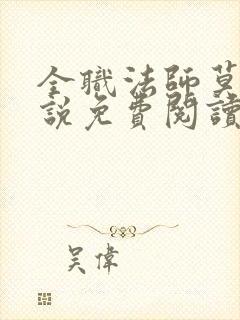 全職法師莫
說免費閱讀
吳偉